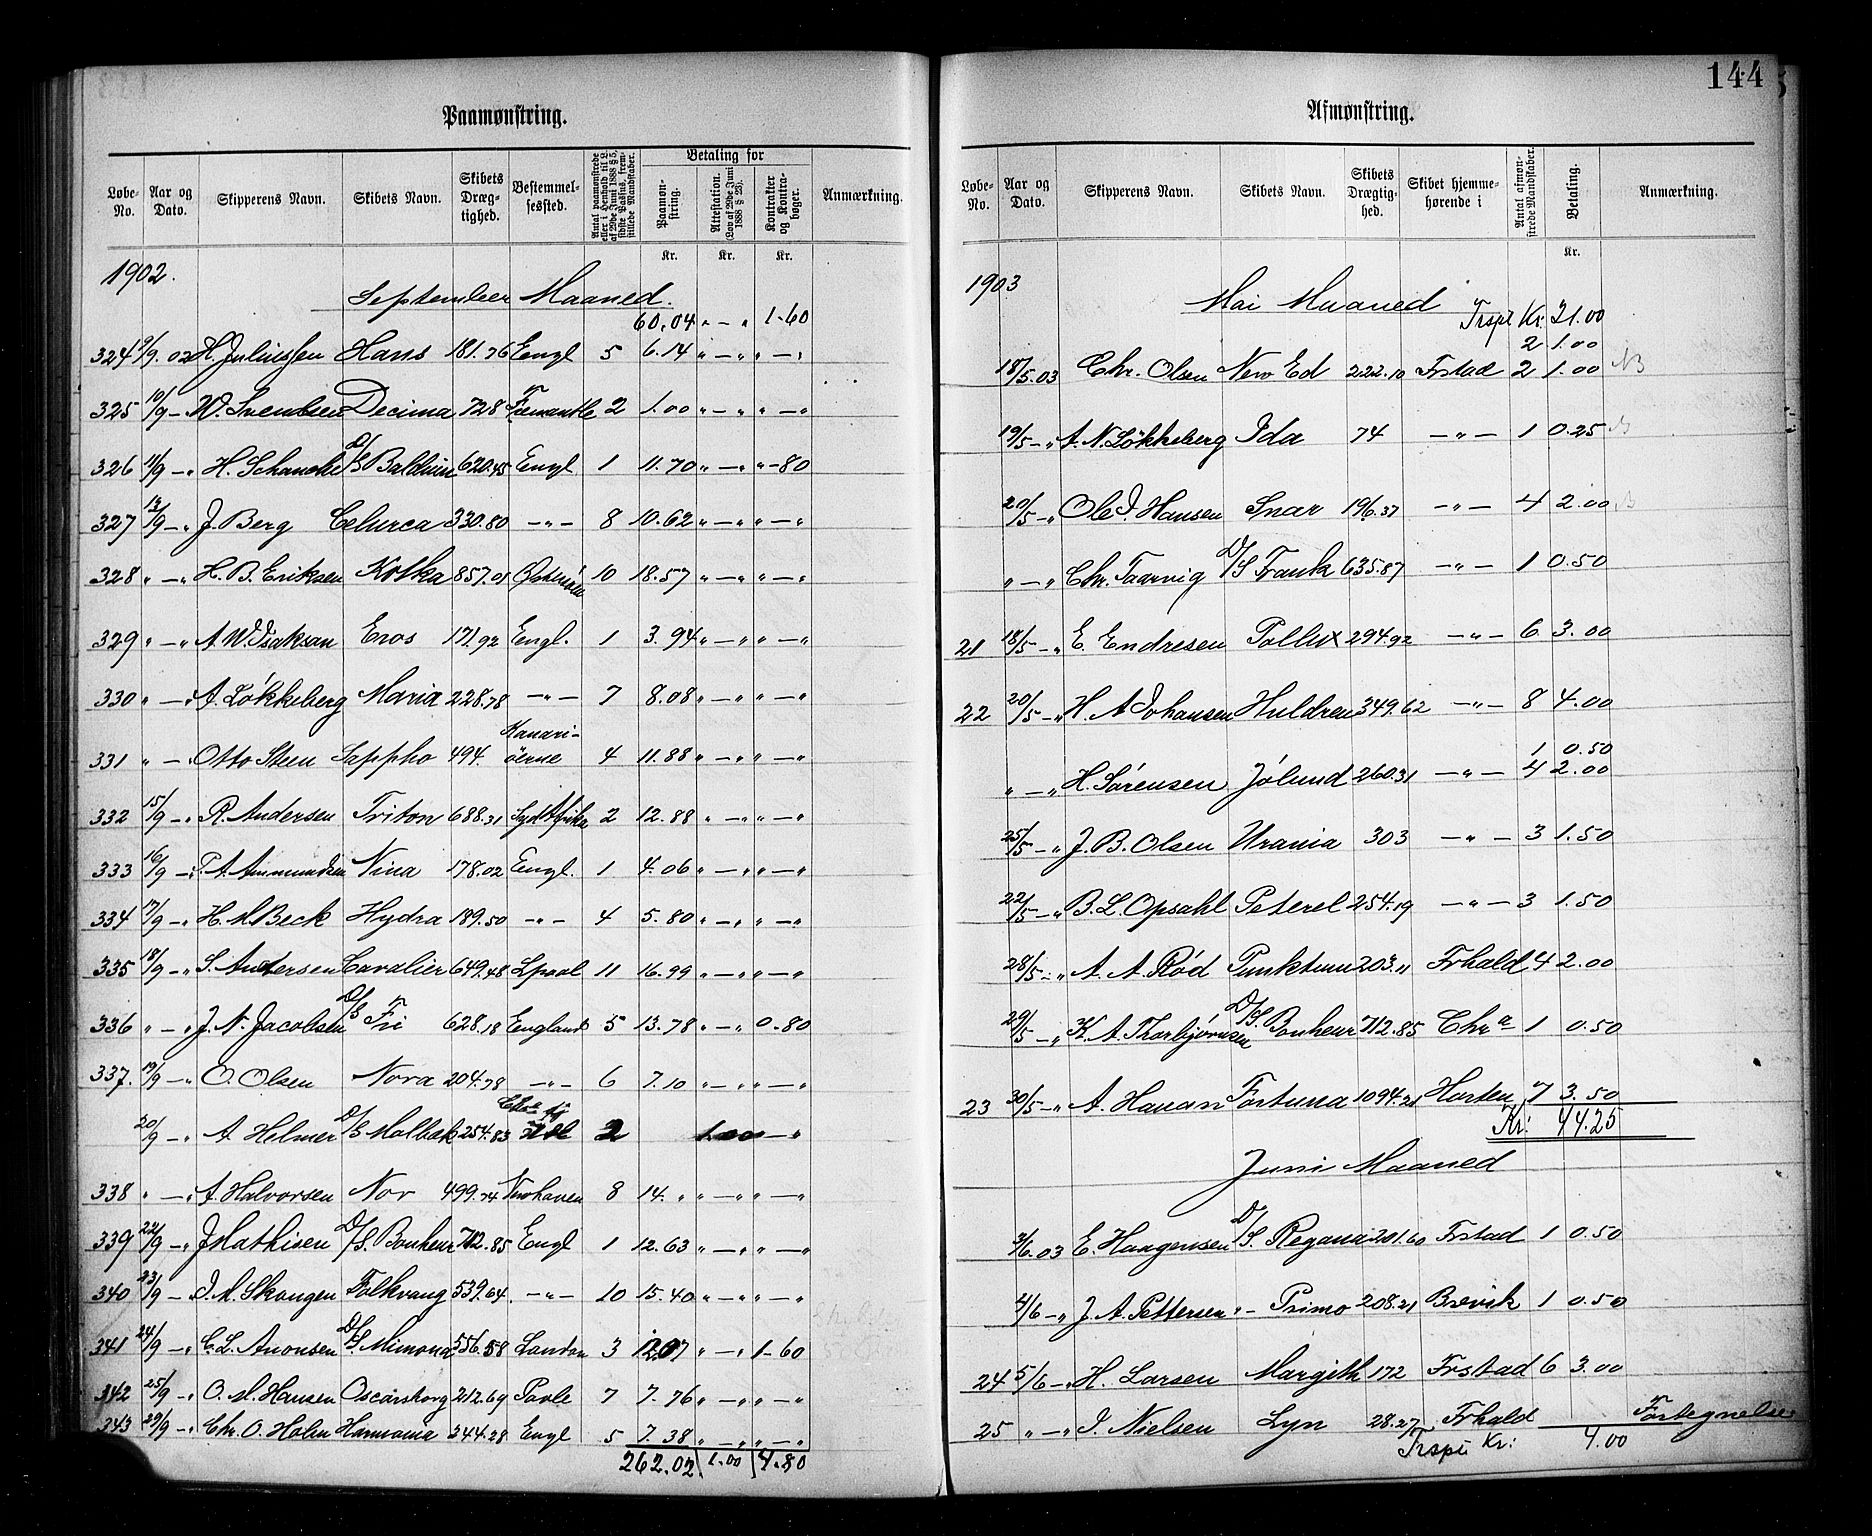 144
Paamønstring.
Løbe-No. Aar og Dato. Skipperens Navn. Skibets Navn. Skibets Dræg-tighed. Bestemmel-sessted. Antal paamønstrede eller i Henhold til L. af 29de Juni 1888 § 5, sidste Passus, frem-stillede Mandskaber. Betaling for Paamøn-string. Attestation. (Lov af 29de Juni 1888 § 23). Kontrakter og Kontra-bøger. Anmærkning.
Kr. Kr. Kr.
1902.
September Maaned.
60.04 " — " 1.60
324 9/9. 02 H. Juliussen Hans 181.76 Engl 5 6.14 " — " " — "
325 10/9 — W. Svendsen Decima 728 Fremantle 2 1.00 " — " " — "
326 11/9 — " H. Schanche D/S Balduin 620.45 Engl 1 11.70 " — " " -80
327 13/9 — " J. Berg Celurca 330.80 — " — 8 10.62 " — " " — "
328 " — " H. B. Eriksen Kotka 857.05 10 18.57 " — " " — "
329 " — " A. W. Isaksan Eros 171.92 Engl. 1 3.94 " — " " — "
330 " — " A. Løkkeberg Maria 228.78 — " — 7 8.08 " — " " — "
331 " — " Otto Steen Sappho 494. Kanari-øerne 4 11.88 " — " " — "
332 15/9 — " R. Andersen Triton 688.31 Syd Afrika 2 12.88 " — " " — "
333 16/9 — " T. A. Ammundsen Nina 178.02 Engl. 1 4.06 " — " " — "
334 17/9 — " H. M Beck Hydra 189.50 — " — 4 5.80 " — " " — "
335 18/9 — " S. Andersen Cavalier 649.48 Lpool 11 16.99 " — " " — "
336 " — " J. N. Jacobsen D/S Fri 628.18 England 5 13.78 " — " 0.80
337. 19/9 — " O. Olsen Nora 204.78 — " — 6 7.10 " — " " — "
20/9 — " A Helmer D/S Molbæk 254.83 2 1.00 — "
338 " — " A. Halvorsen Nor 499.74 Newhaven 8 14. " " — " " — "
339 22/9 — " J Mathisen D/S. Bonheur 712.85 Engl 1 12.63 " — " " — "
340 23/9 — " J. M. Skougen Folkvang 539.64 — " — 10 15.40 " — " " — "
341 24/9 — " C. L. Anonsen D/S. Mimona 556.58 London 3 12.07 " — " 1.60
342 25/9 — " O. M. Hansen Oscarsborg 212.69 Poole 7 7.76 " — " " — "
343 29/9 — " Chr. O. Holm Harmonia 244.28 Engl 5 7.38 " — " " — "
262.02 1.00 4.80
Afmønstring.
Løbe-No. Aar og Dato. Skipperens Navn. Skibets Navn. Skibets Drægtig-hed. Skibet hjemme-hørende i Antal afmøn-strede Mandskaber. Betaling. Anmærkning.
Kr.
1903
Mai Maaned
Trspt Kr. 21.00
2 1.00
18/5.03 Chr. Olsen New Ed 222.10 Frstad 2 1.00
19/5 — " A. N. Løkkeberg Ida 74 — " — 1 0.25
20/5 — " Ole J. Hansen Snar 196.37 — " — 4 2.00
" — " Chr. Taarvig D/S Frank 635.87 — " — 1 0.50
21 18/5 — " E. Endresen Pollux 294.92 — " — 6 3.00
22 20/5 — " H. A Johansen Huldren 349.62 — " — 8 4.00
1 0.50
" — " H. Sørensen Jølund 260.31 — " — 4 2.00
25/5 — " J. B. Olsen Urania 303 — " — 3 1.50
22/5 — " B. L. Opsahl Peterel 254.19 — " — 3 1.50
28/5 — " A. A. Rød Punktum 203.11 Frhald 4 2.00
29/5 — " K. A. Thorbjørnsen D/S. Bonheur 712.85 Chra 1 0.50
23 30/5 — " A. Hanan Fortuna 1094.21 Horten 7 3.50
Kr: 44.25
Juni Maaned
3/6.03 E. Haagensen D/S. Regana 201.60 Frstad 1 0.50
4/6 — " J. A. Pettersen " - Primo 208.21 Brevik 1 0.50
24 5/6 — " H. Larsen Margith 172 Frstad 6 3.00
25 " — " J. Nielsen Lyn 28.27 Frhald Førtegnelse
Trspt Kr: 4.00